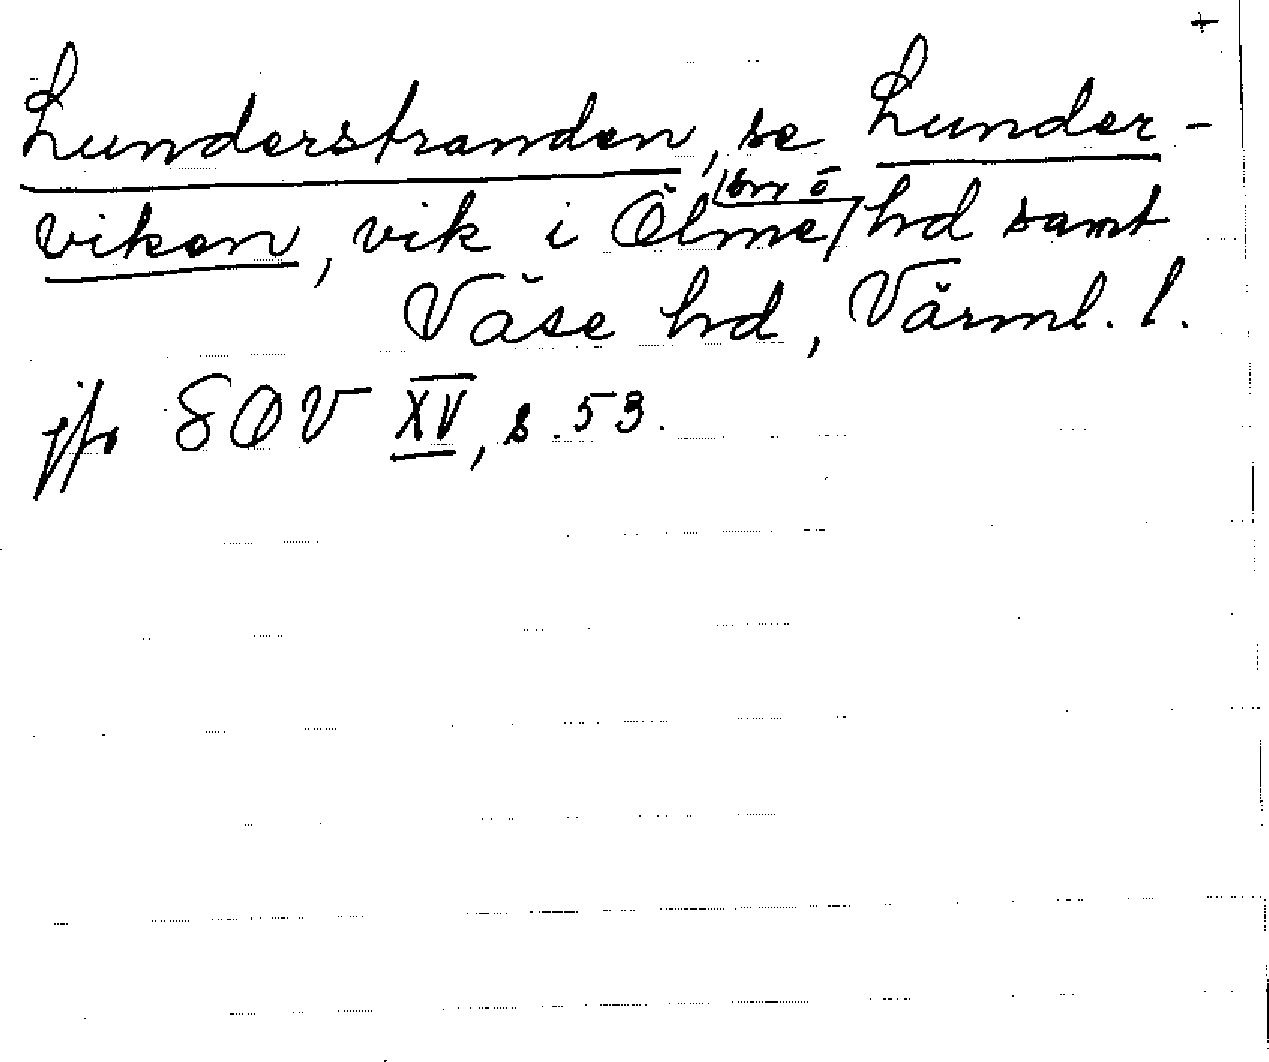 +
Lunderstranden, se Lunder-
viken, vik i Ölme hd samt
Väse hd, Värml. l.
jfr SOV XV, s. 53.